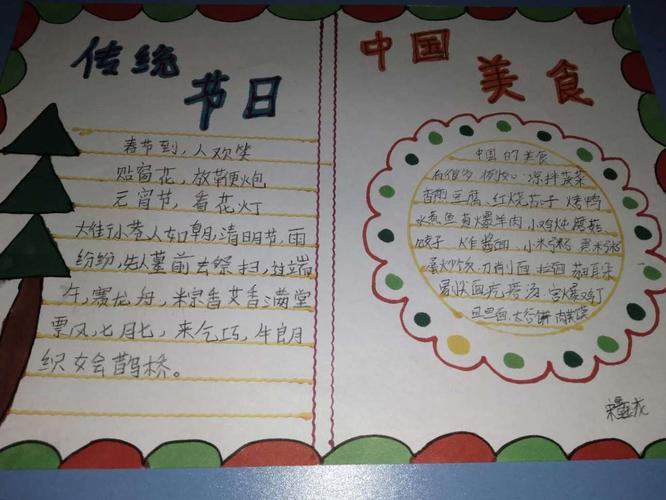 传统
节日
春节到,人欢笑
贴窗花,放鞭炮
元宵节,看花灯
大街小巷人如潮,清明节,雨
纷纷,先人墓前去祭扫,过端
午,赛龙舟,粽香艾香满堂
飘,七月七,来乞巧,牛郎
织女会鹊桥。
中国
美食
中国的美食
有很多 例如:凉拌菠菜
香煎豆腐、红烧茄子 烤鸭
水煮鱼 葱爆羊肉 小鸡炖蘑菇
饺子 炸酱面 小米粥 黑米粥
刀削面 拉面 猫耳朵
疙瘩汤 宫爆鸡丁
旦旦面 太谷饼